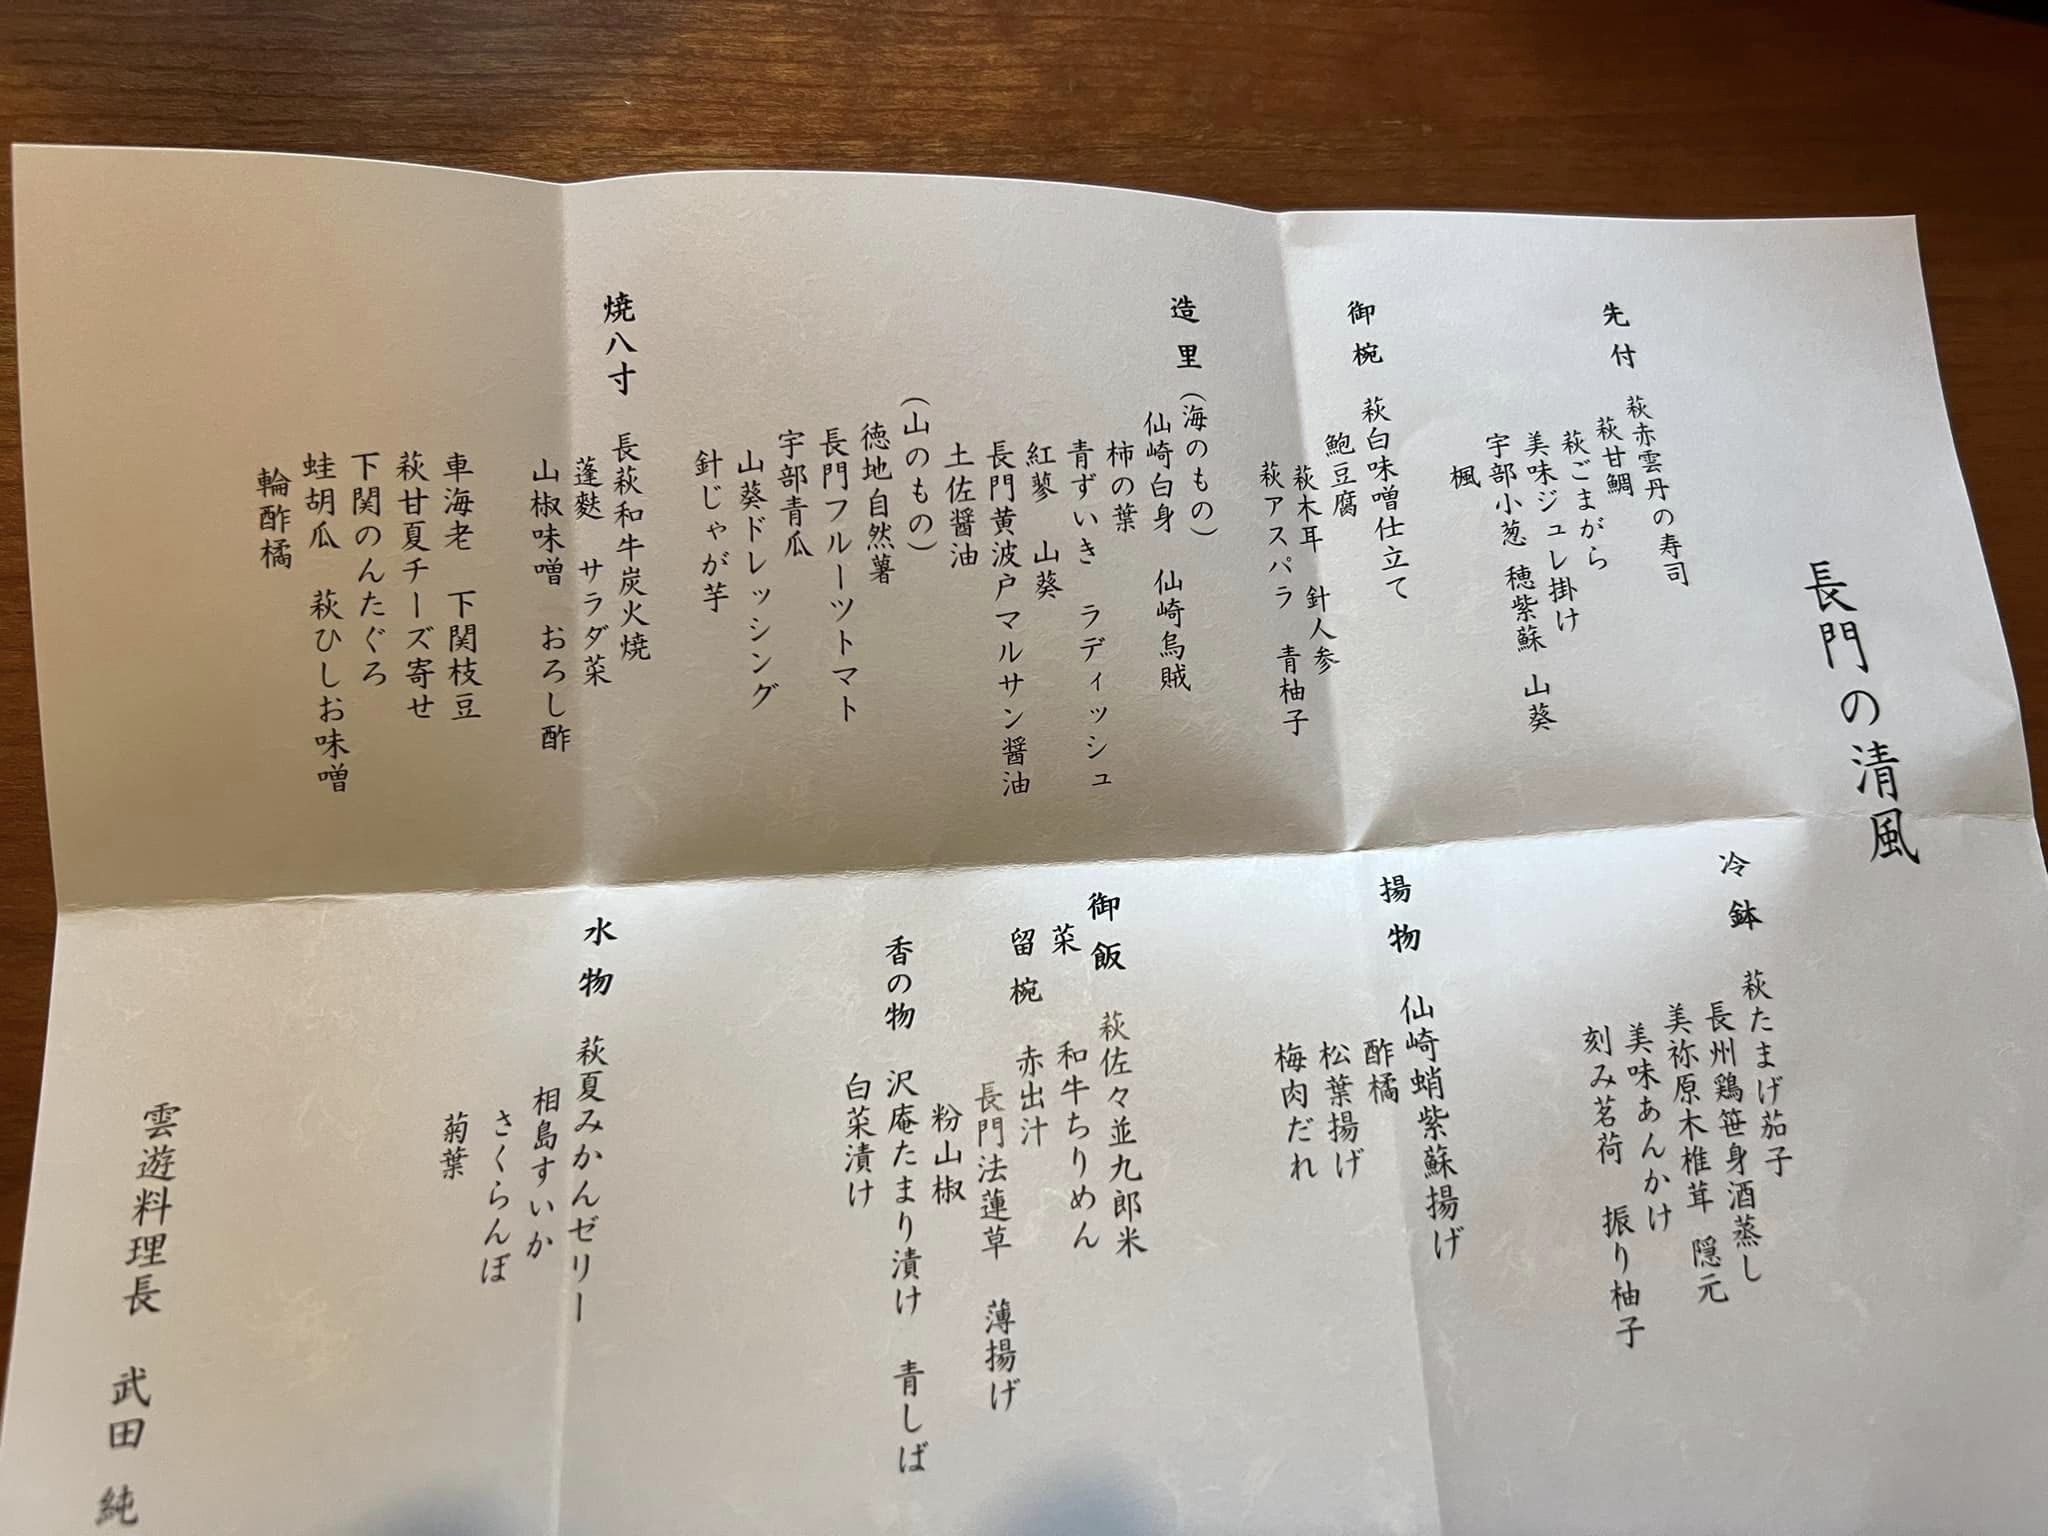 長門の清風
先付 萩赤雲丹の寿司
萩甘鯛
萩ごまがら
美味ジュレ掛け
宇部小葱 穂紫蘇 山葵
楓
御椀 萩白味噌仕立て
鮑豆腐
萩木耳 針人参
萩アスパラ 青柚子
造里 (海のもの)
仙崎白身 仙崎烏賊
柿の葉
青ずいき ラディッシュ
紅蓼 山葵
長門黄波戸マルサン醤油
土佐醤油
(山のもの)
徳地自然薯
長門フルーツトマト
宇部青瓜
山葵ドレッシング
針じゃが芋
焼八寸 長萩和牛炭火焼
蓬麩 サラダ菜
山椒味噌 おろし酢
車海老 下関枝豆
萩甘夏チーズ寄せ
下関のんたぐろ
蛙胡瓜 萩ひしお味噌
輪酢橘
冷鉢 萩たまげ茄子
長州鶏笹身酒蒸し
美祢原木椎茸 隠元
美味あんかけ
刻み茗荷 振り柚子
揚物 仙崎蛸紫蘇揚げ
酢橘
松葉揚げ
梅肉だれ
御飯 萩佐々並九郎米
菜 和牛ちりめん
留椀 赤出汁
長門法蓮草 薄揚げ
粉山椒
香の物 沢庵たまり漬け 青しば
白菜漬け
水物 萩夏みかんゼリー
相島すいか
さくらんぼ
菊葉
雲遊料理長 武田 純